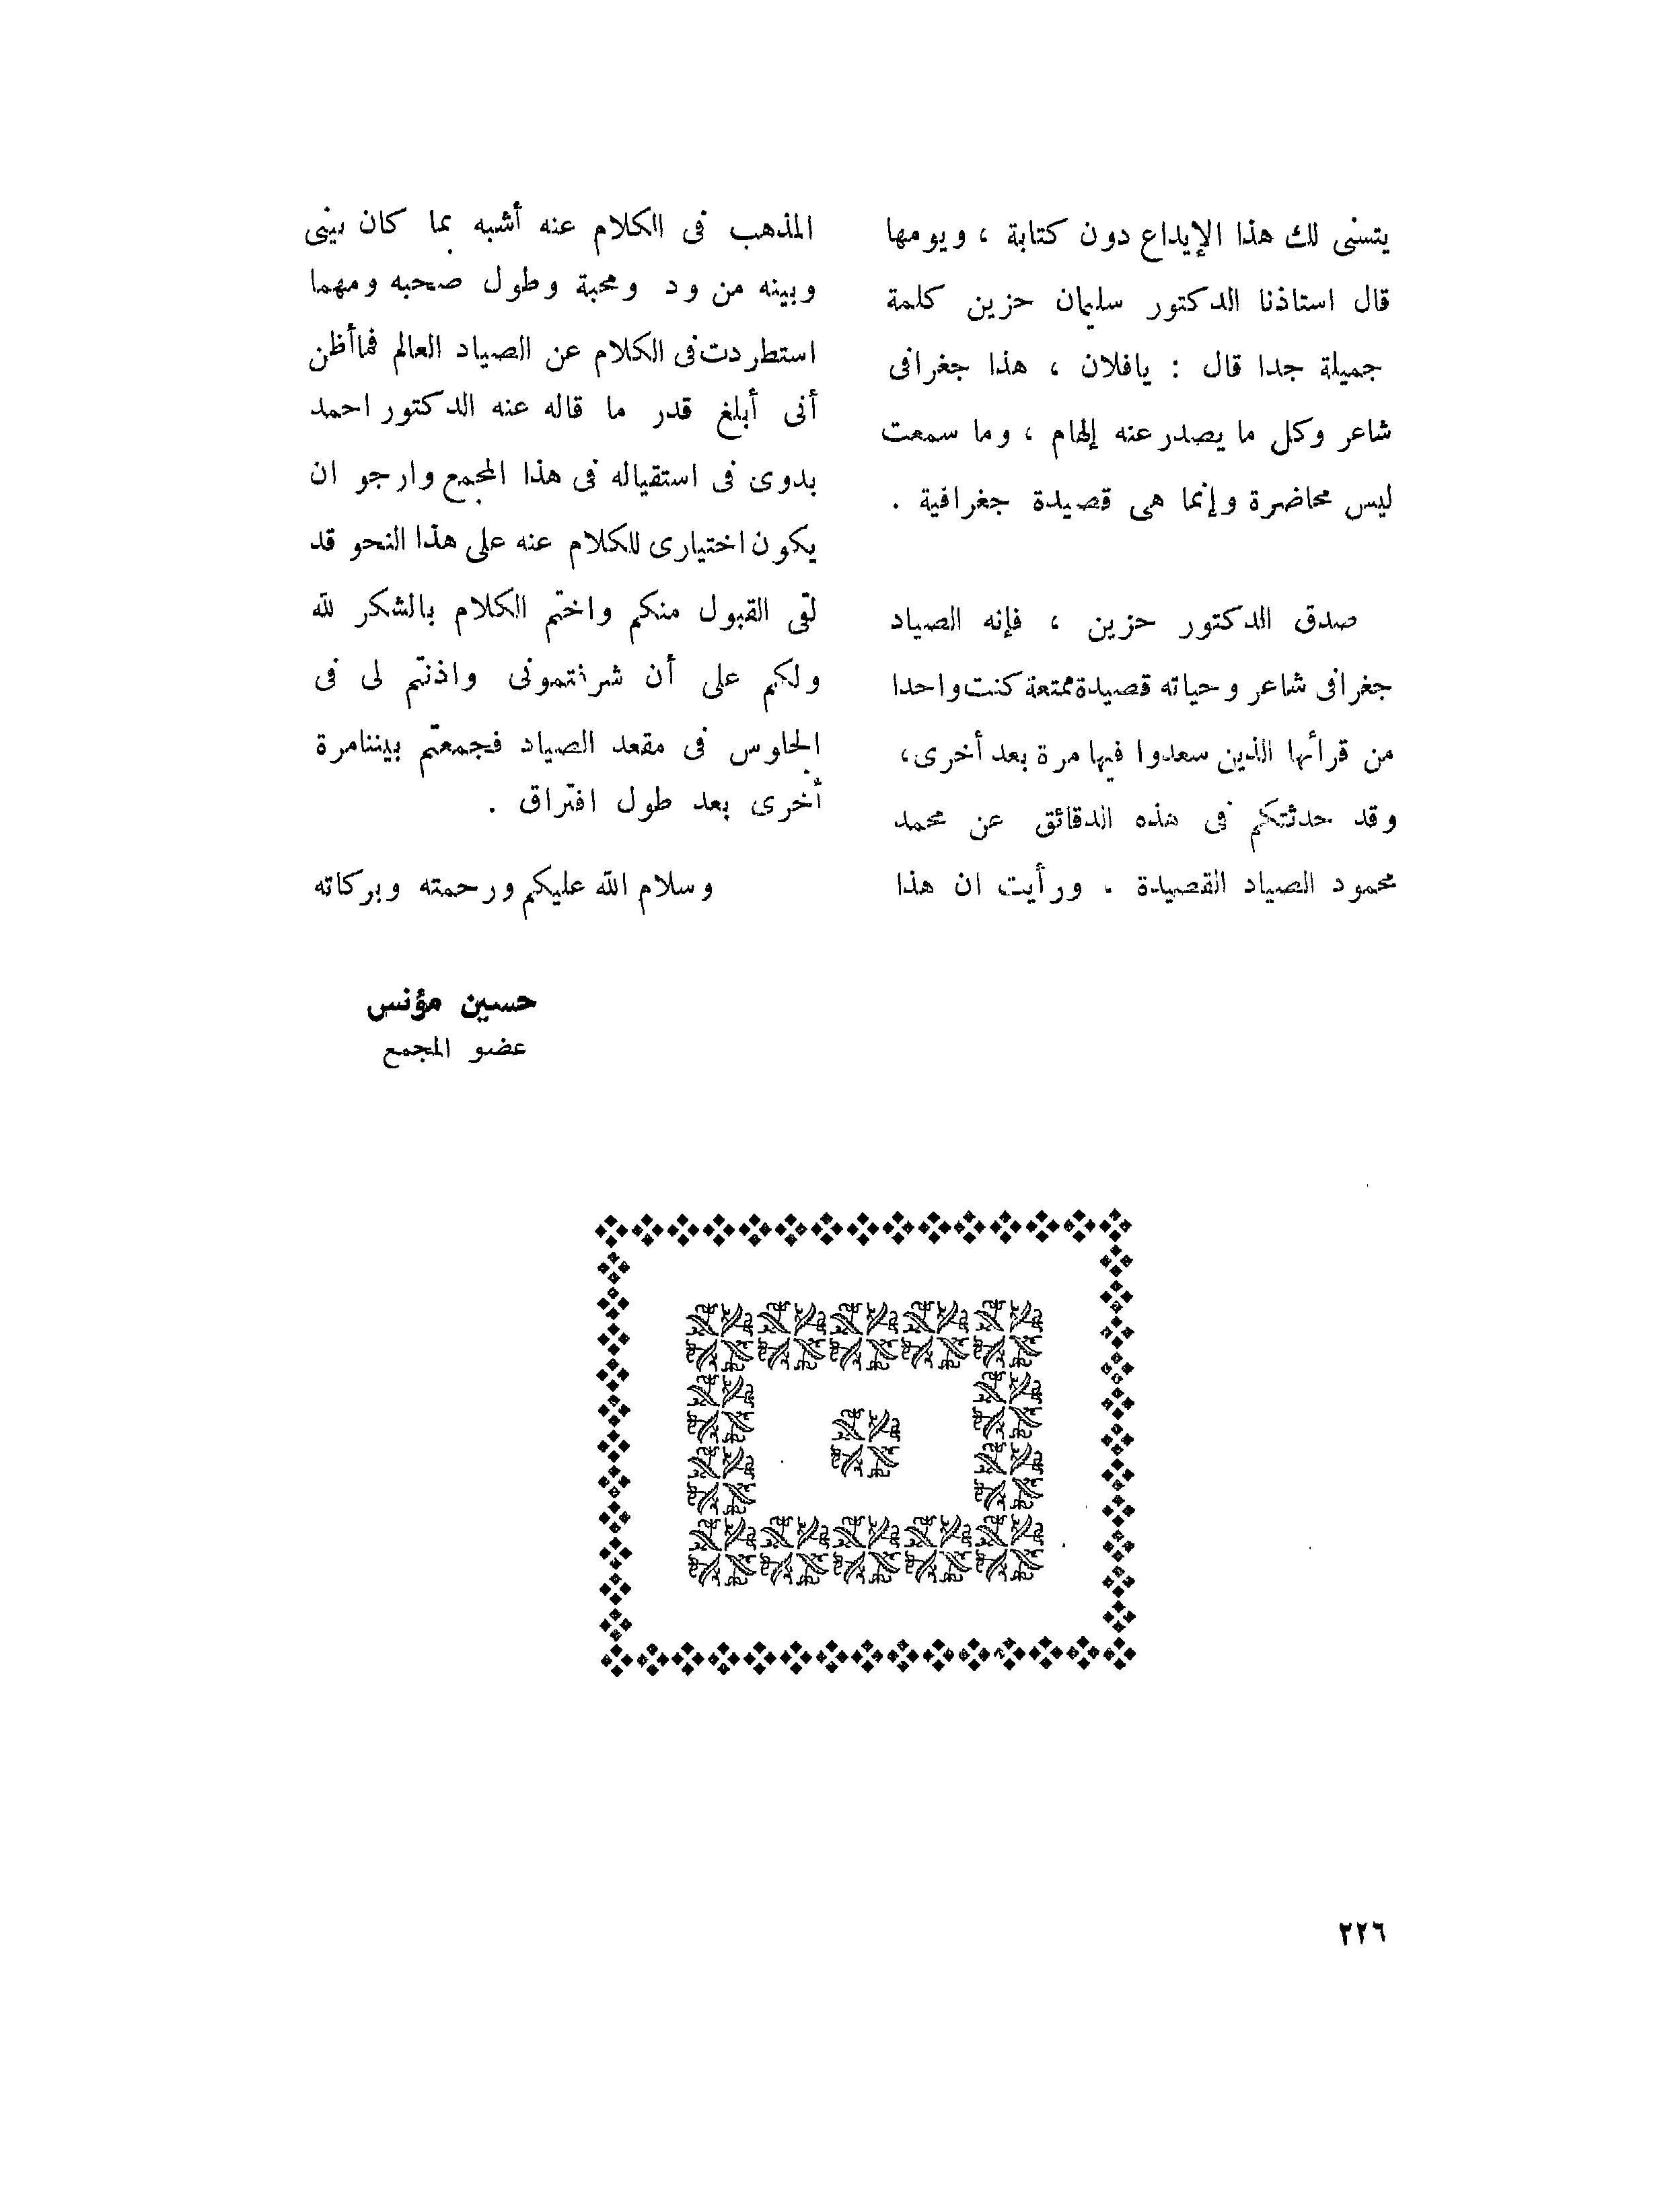 يتسنى لك هذا الإيداع دون كتابة ، ويومها
قال استاذنا الدكتور سليمان حزين كلمة
جميلة جدا قال : يافلان ، هذا جغرافى
شاعر وكل ما يصدر عنه إلهام ، وما سمعت
ليس محاضرة وإنما هى قصيدة جغرافية .
صدق الدكتور حزين ، فإنه الصياد
جغرافى شاعر وحياته قصيدة ممتعة كنت واحدا
من قرأئها الذين سعدوا فيها مرة بعد أخرى،
وقد حدثتكم فى هذه الدقائق عن محمد
محمود الصياد القصيدة . ورأيت ان هذا
المذهب فى الكلام عنه أشبه بما كان بينى
وبينه من ود ومحبة وطول صحبه ومهما
استطردت فى الكلام عن الصياد العالم فماأظن
أنى أبلغ قدر ما قاله عنه الدكتور احمد
بدوى فى استقياله فى هذا المجمع وارجو ان
يكون اختيارى للكلام عنه على هذا النحو قد
لقى القبول منكم واختم الكلام بالشكر لله
ولكم على أن شرفتمونى واذنتم لى فى
الجلوس فى مقعد الصياد فجمعتم بيننامرة
أخرى بعد طول افتراق .
وسلام الله عليكم ورحمته وبركاته
حسين مؤنس
عضو المجمع
٢٢٦